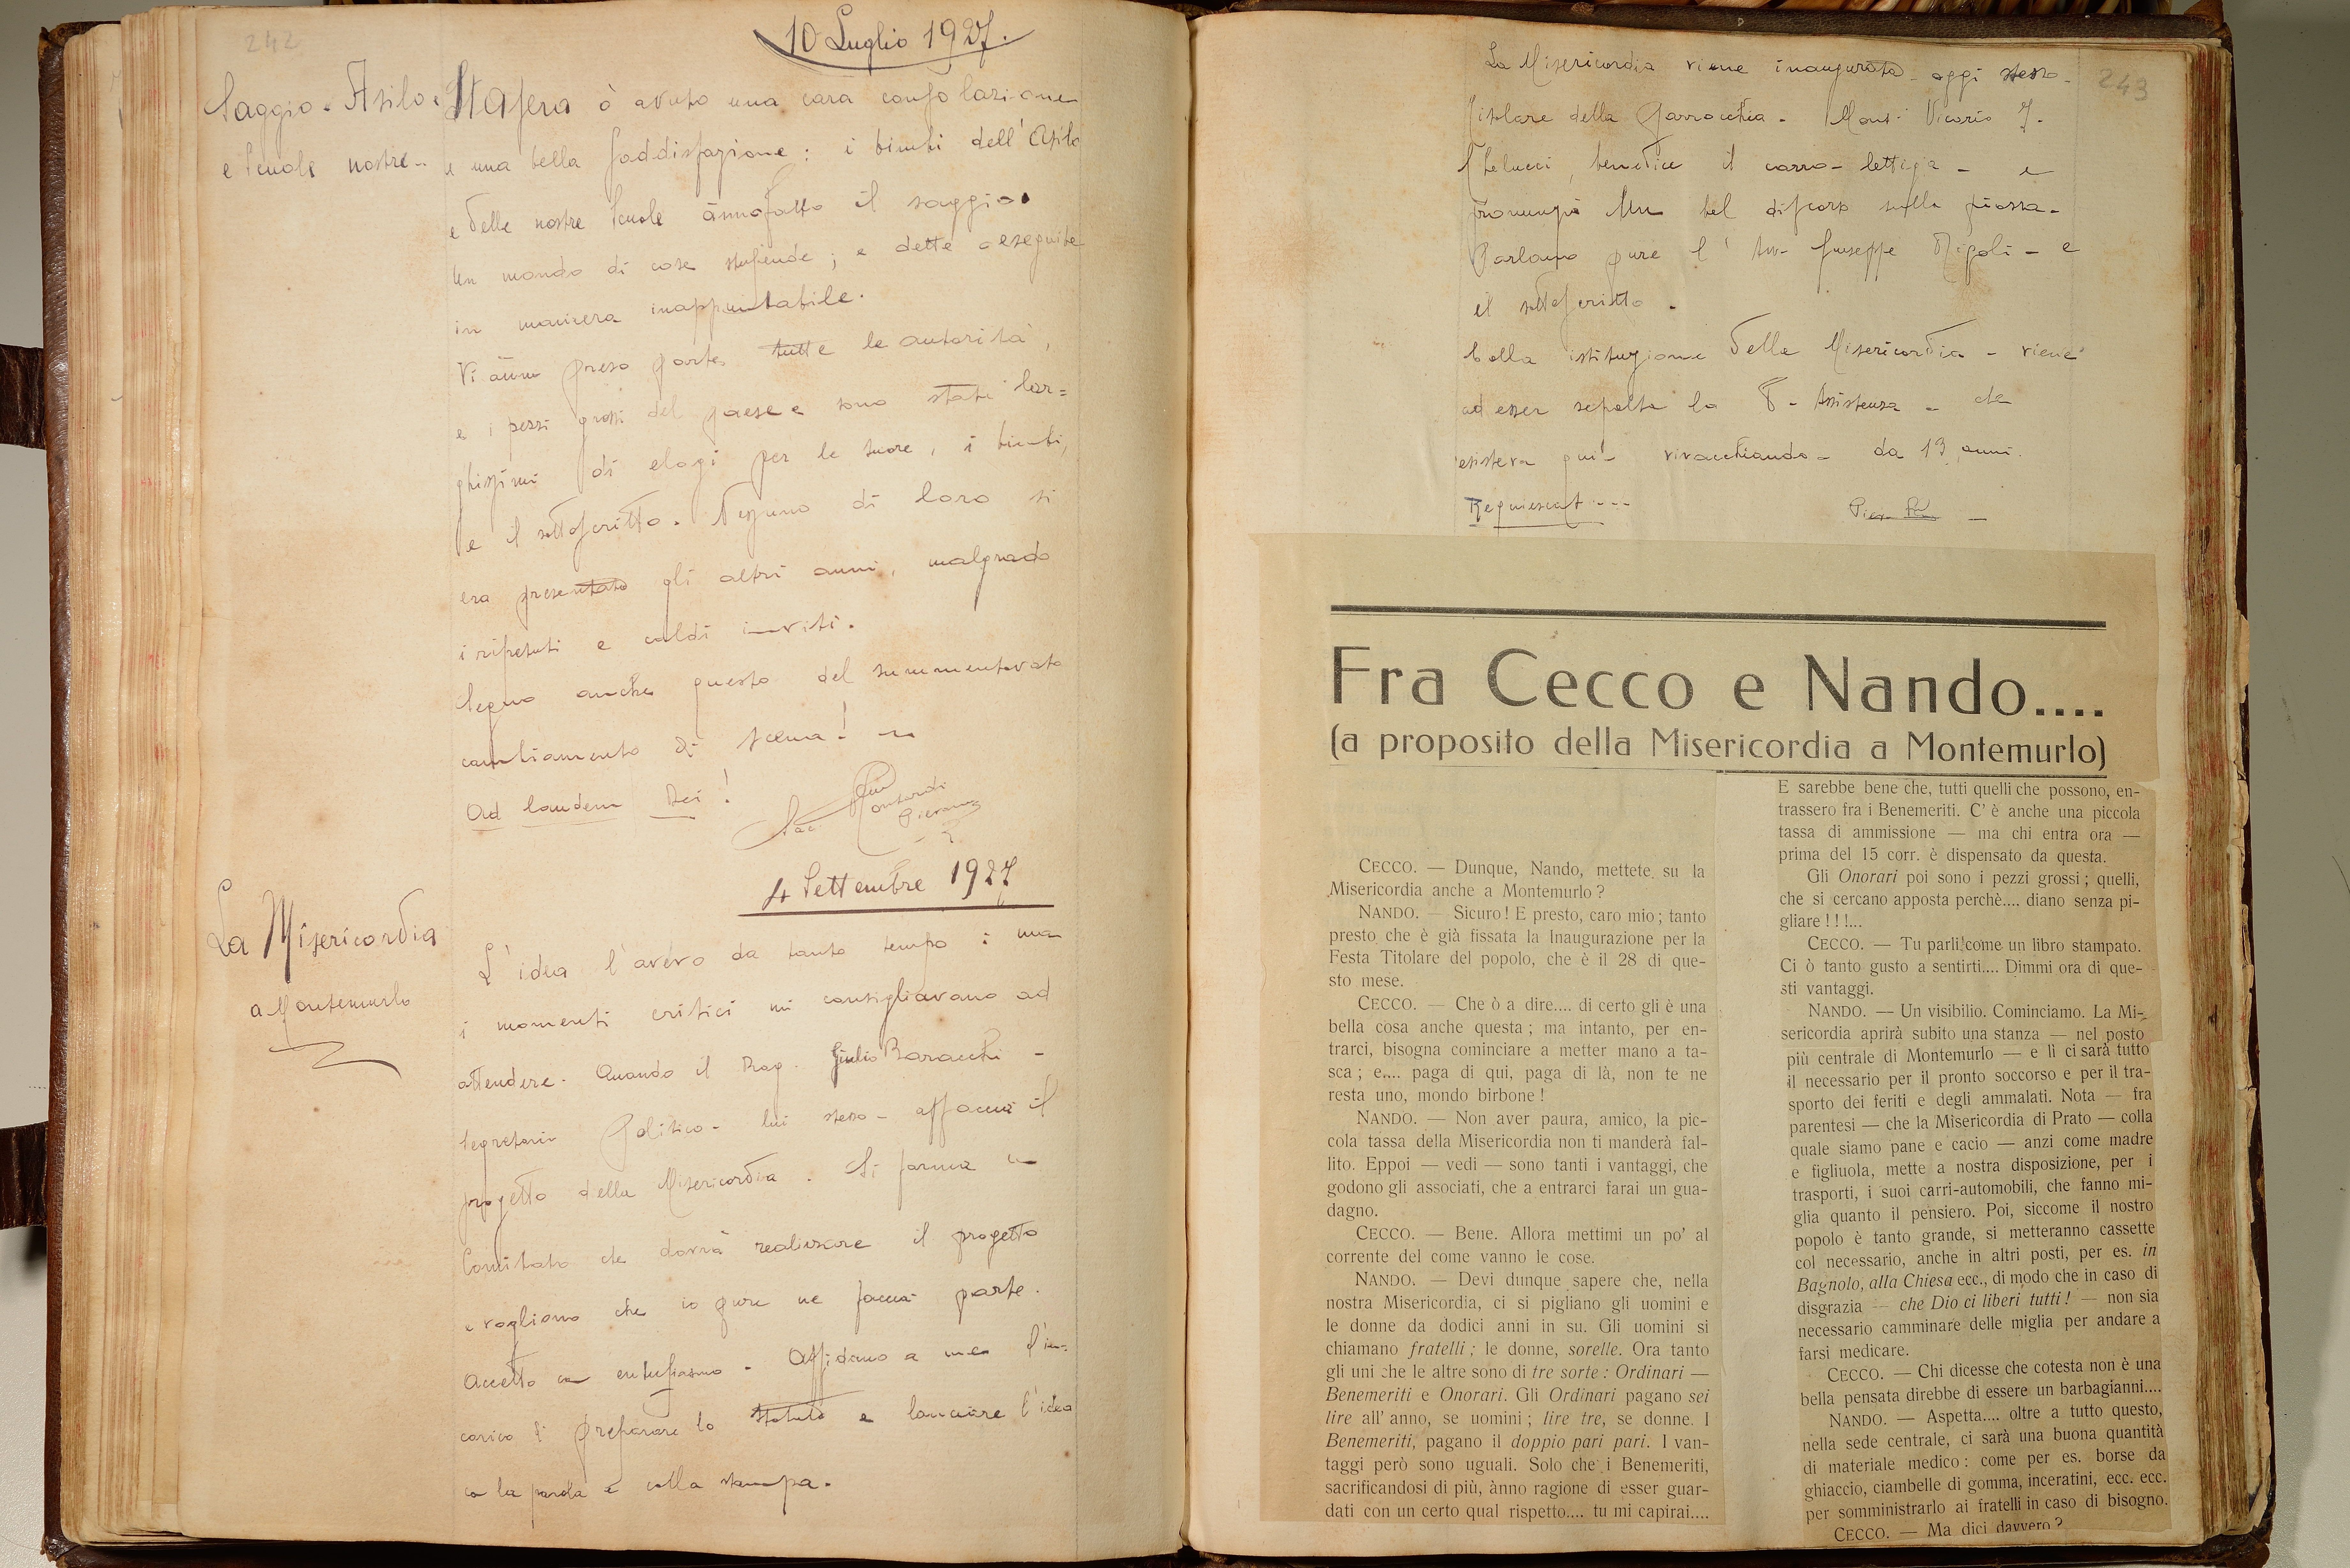 242
10 Luglio 1927.
Saggio - Asilo -
e Scuole nostre -
Stasera ò avuto una cara consolazione
e una bella soddisfazione: i bimbi dell'Asilo
e delle nostre Scuole ànno fatto il saggio.
Un mondo di cose stupende; e dette e eseguite
in maniera inappuntabile.
Vi ànno preso parte tutte le autorità,
e i pezzi grossi del paese e sono stati lar=
ghissimi di elogi per le suore, i bimbi,
e il sottoscritto. Nessuno di loro si
era presentato gli altri anni, malgrado
i ripetuti e caldi inviti.
Segno anche questo del summentovato
cambiamento di scena!
Ad laudem Dei!
Sac.
4 Settembre 1927
La Misericordia
a Montemurlo
L'idea l'avevo da tanto tempo: ma
i momenti critici mi consigliavano ad
attendere. Quando il Rag. Giulio Baracchi -
Segretario Politico - lui stesso - affaccia il
progetto della Misericordia. Si forma un
Comitato che dovrà realizzare il progetto
e vogliono che io pure ne faccia parte.
Accetto con entusiasmo. Affidano a me l'in-
carico di preparare lo statuto e lanciare l'idea
con la parola e colla stampa.
243
La Misericordia viene inaugurata - oggi stesso -
Titolare della Parrocchia - Mons. Vicario
benedice il carro-lettiga - e
pronunzia un bel discorso sulla piazza -
Parlano pure l'Avv. Giuseppe - e
il sottoscritto.
Colla istituzione della Misericordia - viene
ad esser sepolta la P. Assistenza - che
esisteva qui - vivacchiando - da 13 anni.
Requiescat ....
Fra Cecco e Nando....
(a proposito della Misericordia a Montemurlo)
CECCO. — Dunque, Nando, mettete su la
Misericordia anche a Montemurlo?
NANDO. — Sicuro! E presto, caro mio; tanto
presto che è già fissata la Inaugurazione per la
Festa Titolare del popolo, che è il 28 di que-
sto mese.
CECCO. — Che ò a dire.... di certo gli è una
bella cosa anche questa; ma intanto, per en-
trarci, bisogna cominciare a metter mano a ta-
sca; e.... paga di qui, paga di là, non te ne
resta uno, mondo birbone!
NANDO. — Non aver paura, amico, la pic-
cola tassa della Misericordia non ti manderà fal-
lito. Eppoi — vedi — sono tanti i vantaggi, che
godono gli associati, che a entrarci farai un gua-
dagno.
CECCO. — Bene. Allora mettimi un po' al
corrente del come vanno le cose.
NANDO. — Devi dunque sapere che, nella
nostra Misericordia, ci si pigliano gli uomini e
le donne da dodici anni in su. Gli uomini si
chiamano fratelli; le donne, sorelle. Ora tanto
gli uni che le altre sono di tre sorte: Ordinari —
Benemeriti e Onorari. Gli Ordinari pagano sei
lire all'anno, se uomini; lire tre, se donne. I
Benemeriti, pagano il doppio pari pari. I van-
taggi però sono uguali. Solo che i Benemeriti,
sacrificandosi di più, ànno ragione di esser guar-
dati con un certo qual rispetto.... tu mi capirai....
E sarebbe bene che, tutti quelli che possono, en-
trassero fra i Benemeriti. C'è anche una piccola
tassa di ammissione — ma chi entra ora —
prima del 15 corr. è dispensato da questa.
Gli Onorari poi sono i pezzi grossi; quelli,
che si cercano apposta perchè.... diano senza pi-
gliare!!!...
CECCO. — Tu parli come un libro stampato.
Ci ò tanto gusto a sentirti.... Dimmi ora di que-
sti vantaggi.
NANDO. — Un visibilio. Cominciamo. La Mi-
sericordia aprirà subito una stanza — nel posto
più centrale di Montemurlo — e lì ci sarà tutto
il necessario per il pronto soccorso e per il tra-
sporto dei feriti e degli ammalati. Nota — fra
parentesi — che la Misericordia di Prato — colla
quale siamo pane e cacio — anzi come madre
e figliuola, mette a nostra disposizione, per i
trasporti, i suoi carri-automobili, che fanno mi-
glia quanto il pensiero. Poi, siccome il nostro
popolo è tanto grande, si metteranno cassette
col necessario, anche in altri posti, per es. in
Bagnolo, alla Chiesa ecc., di modo che in caso di
disgrazia — che Dio ci liberi tutti! — non sia
necessario camminare delle miglia per andare a
farsi medicare.
CECCO. — Chi dicesse che cotesta non è una
bella pensata direbbe di essere un barbagianni....
NANDO. — Aspetta.... oltre a tutto questo,
nella sede centrale, ci sarà una buona quantità
di materiale medico: come per es. borse da
ghiaccio, ciambelle di gomma, inceratini, ecc. ecc.
per somministrarlo ai fratelli in caso di bisogno.
CECCO. — Ma dici davvero?